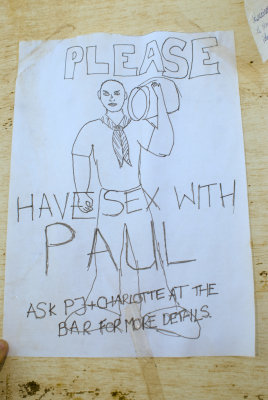 PLEASE
HAVE SEX WITH
PAUL
ASK PJ + CHARLOTTE AT THE
BAR FOR MORE DETAILS.